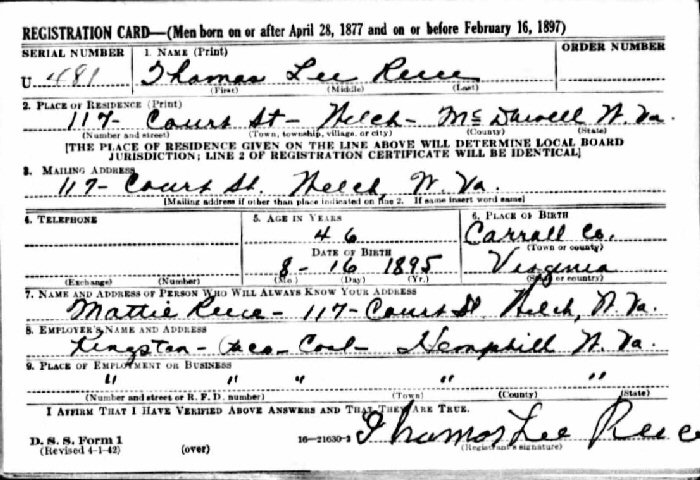 REGISTRATION CARD—(Men born on or after April 28, 1877 and on or before February 16, 1897)
SERIAL NUMBER 1. NAME (Print) ORDER NUMBER
U 481 Thomas Lee Reece
(First) (Middle) (Last)
2. PLACE OF RESIDENCE (Print)
117- Court St- Welch- McDowell W. Va.
(Number and street) (Town, township, village, or city) (County) (State)
[THE PLACE OF RESIDENCE GIVEN ON THE LINE ABOVE WILL DETERMINE LOCAL BOARD
JURISDICTION; LINE 2 OF REGISTRATION CERTIFICATE WILL BE IDENTICAL]
3. MAILING ADDRESS
117- Court St. Welch, W. Va.
[Mailing address if other than place indicated on line 2. If same insert word same]
4. TELEPHONE 5. AGE IN YEARS 6. PLACE OF BIRTH
46 Carroll Co.
DATE OF BIRTH (Town or county)
8- 16 1895 Virginia
(Exchange) (Number) (Mo.) (Day) (Yr.) (State or country)
7. NAME AND ADDRESS OF PERSON WHO WILL ALWAYS KNOW YOUR ADDRESS
Mattie Reece- 117- Court St Welch, W. Va.
8. EMPLOYER'S NAME AND ADDRESS
Kingston- Poca- Coal- Hemphill W. Va.
9. PLACE OF EMPLOYMENT OR BUSINESS
" " " " "
(Number and street or R. F. D. number) (Town) (County) (State)
I AFFIRM THAT I HAVE VERIFIED ABOVE ANSWERS AND THAT THEY ARE TRUE.
Thomas Lee Reece
D. S. S. Form 1 16—21630-2 (Registrant's signature)
(Revised 4-1-42) (over)